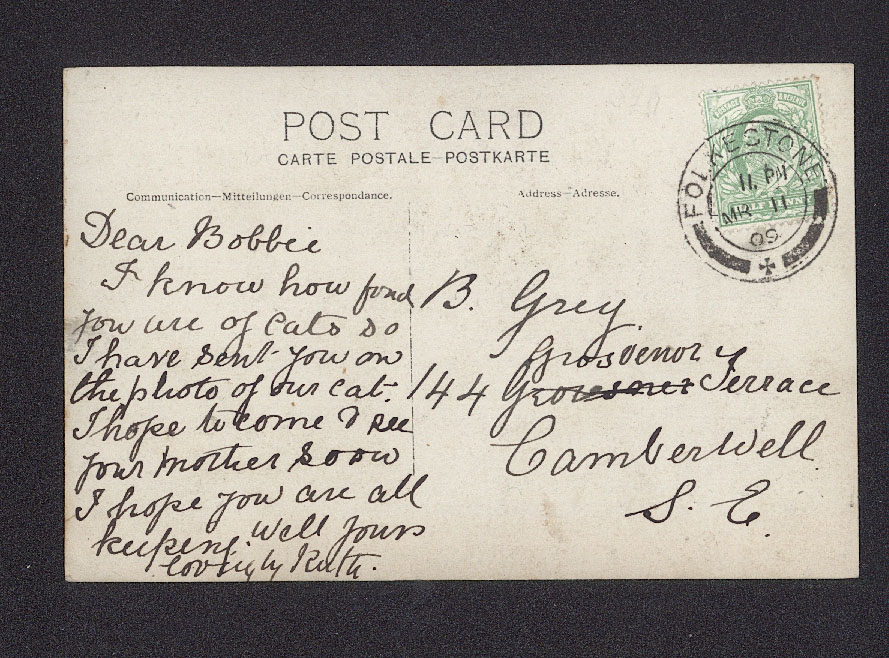 POST CARD
CARTE POSTALE–POSTKARTE
Communication—Mitteilungen—Correspondance.
Address—Adresse.
FOLKESTONE
11. PM
MR 11
09
Dear Bobbie
I know how fond
you are of cats so
I have sent you on
the photo of our cat.
I hope to come & see
your mother soon
I hope you are all
keeping well yours
lovingly Ruth.
B. Grey
Grosvenor
144 Grovesner Terrace
Camberwell
S. E.